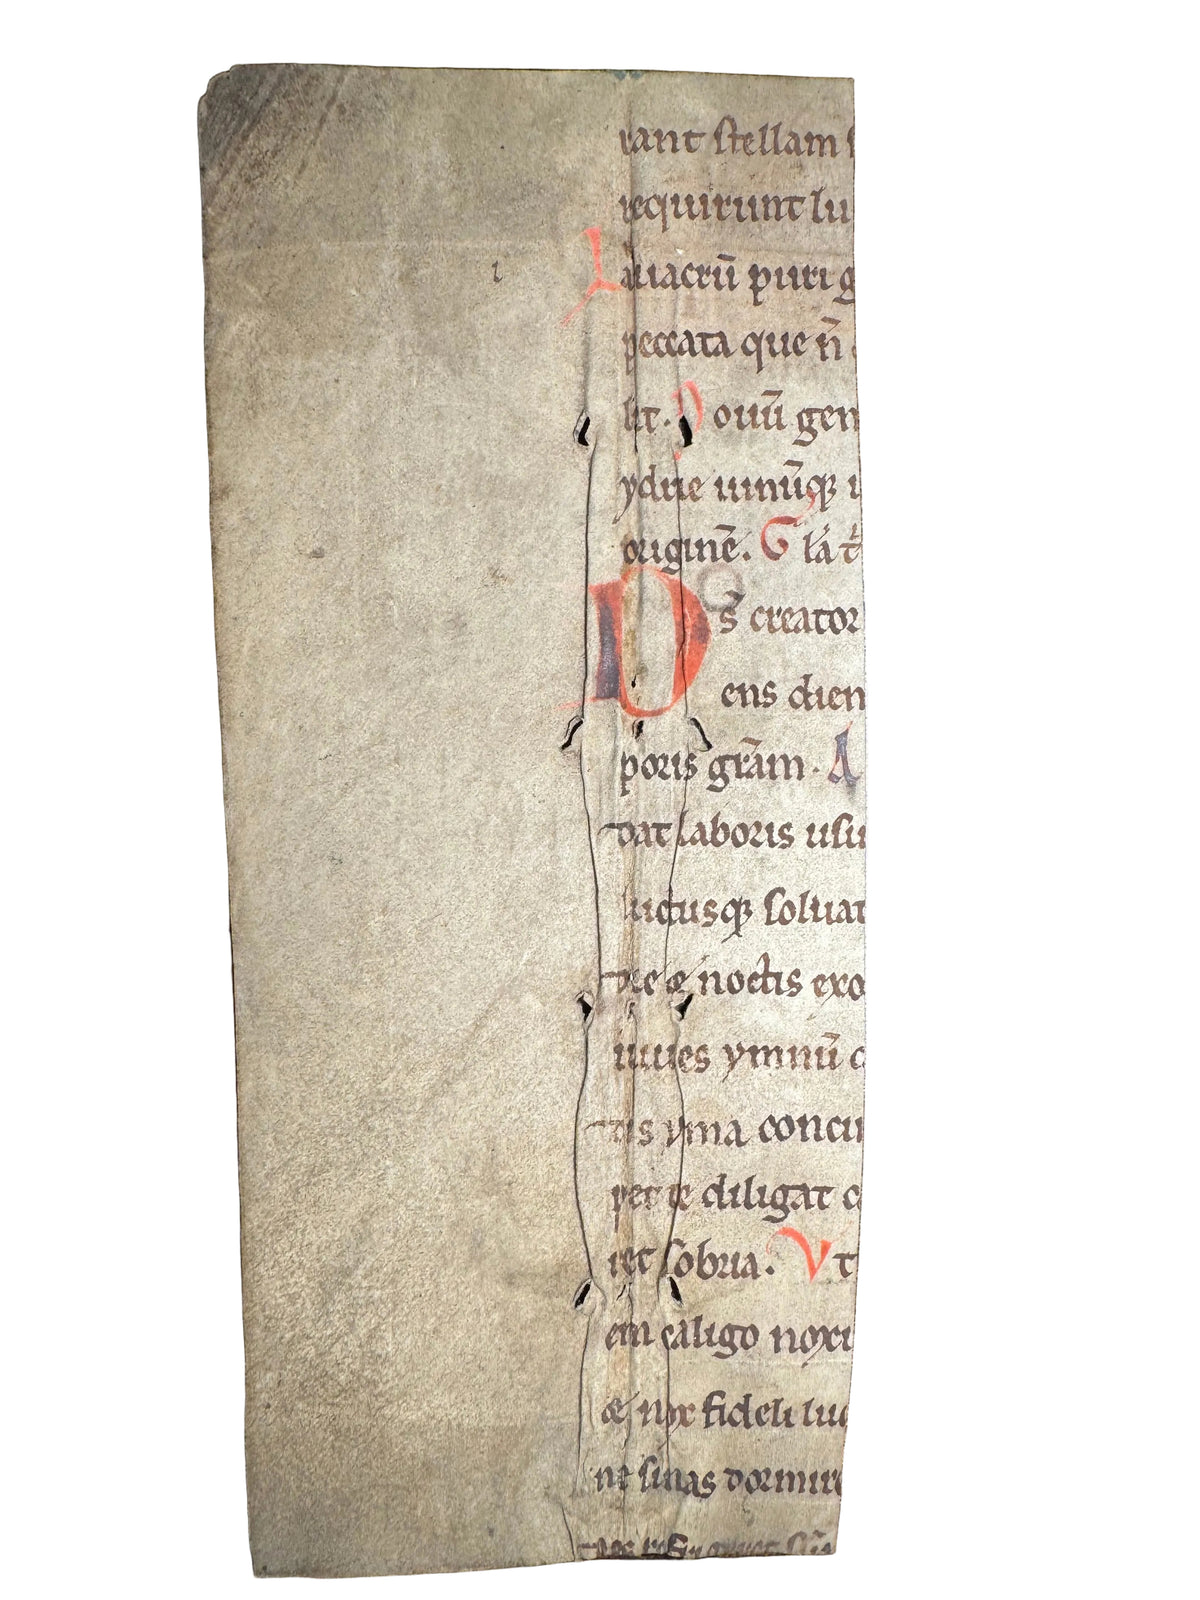 rant stellam s
requirunt lu
Lauacrū puri g
peccata que n̄
lit. Nouū gen
ydrie uinūqꝫ i
originē. Gla t̄
Ds̄ creator
ens diem
poris gr̄am. A
dat laboris usu
luctusqꝫ soluat
die & noctis exo
iuues ymnū c
dis yma concin
pet te diligat c
ret sobria. Vt
em caligo noxi
& nox fidei luc
ne sinas dormire